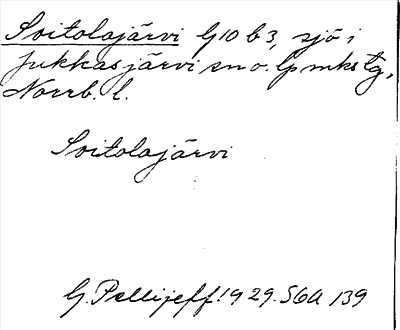 Soitolajärvi G10 b 3, sjö i
Jukkasjärvi sn o. lpmkstg,
Norrb. l.
Soitolajärvi
G. Pellijeff. 1929. S6A 139